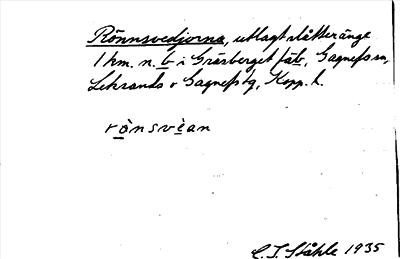 Rönnsvedjorna, utlagt slåtteränge
1 km. n. b i Gråsberget fäb, Gagnefs sn,
Leksands o Gagnefs tg, Kopp. l.
rònsvèan
C. I. Ståhle 1935